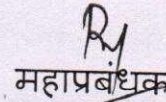 महाप्रबंधक